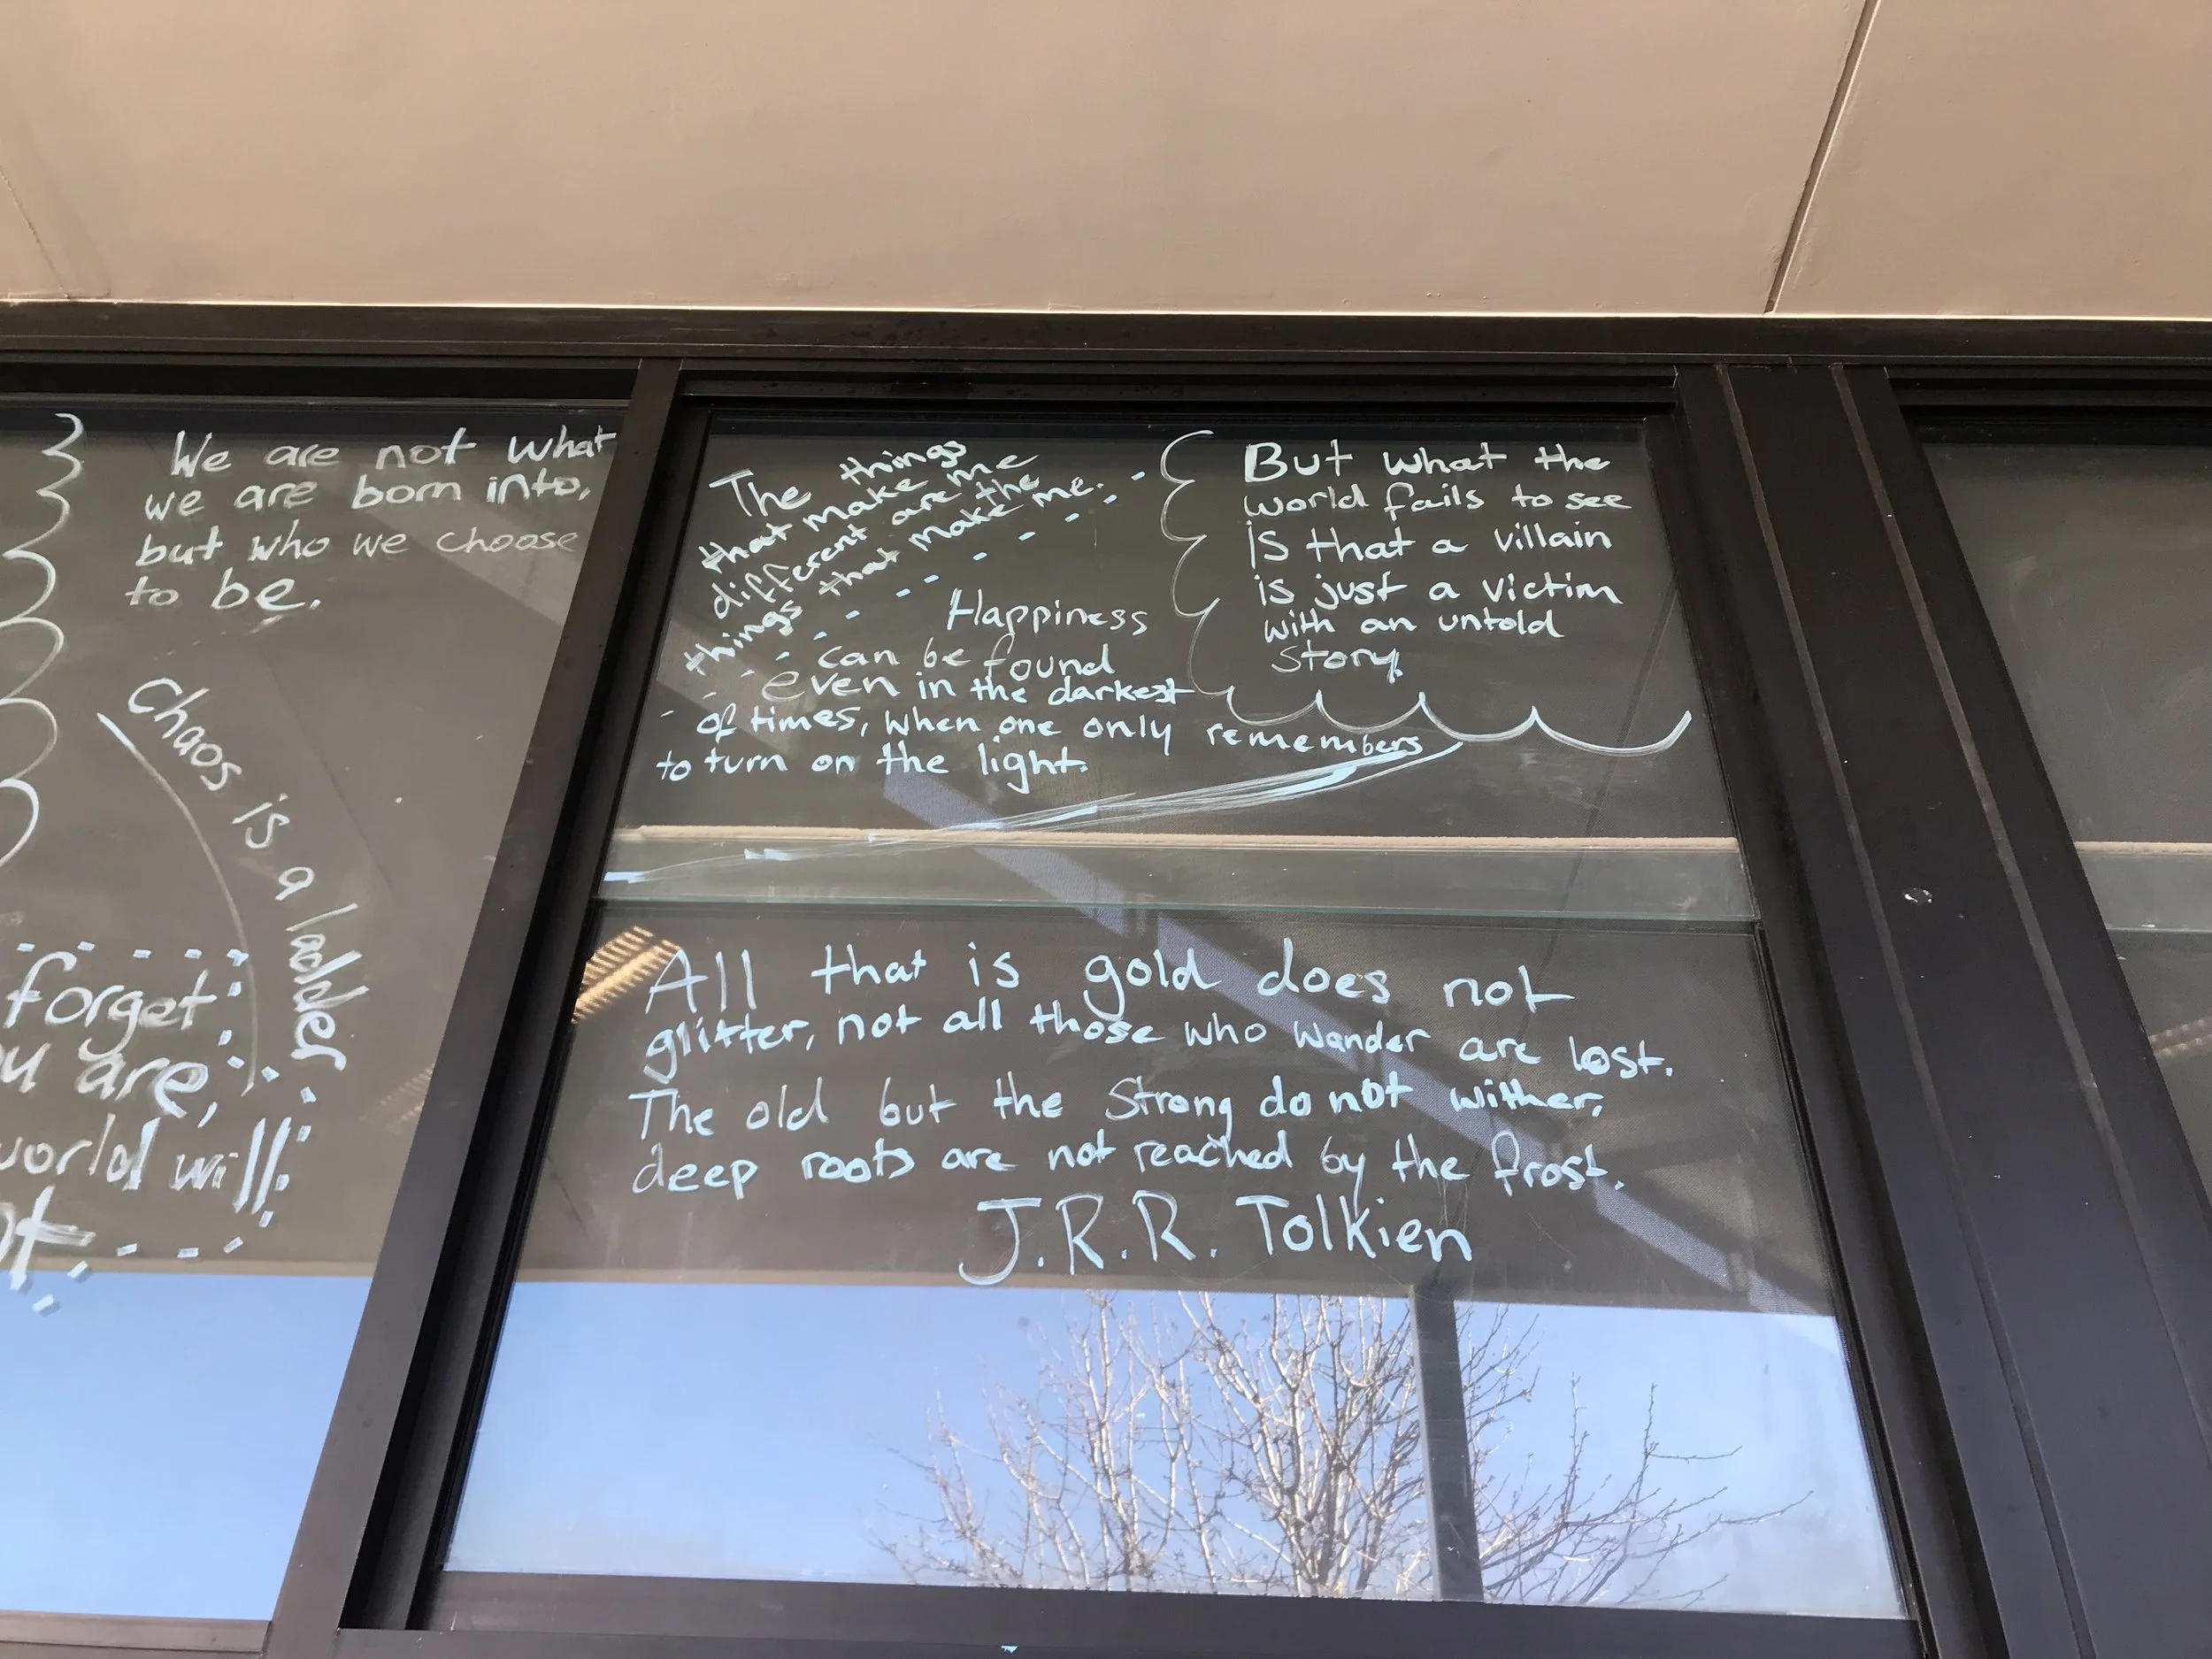 We are not what
we are born into,
but who we choose
to be.
Chaos is a ladder
forget
are,
world will
The things
that make me
different are the
things that make me.
But what the
world fails to see
is that a villain
is just a victim
with an untold
story.
Happiness
can be found
even in the darkest
of times, when one only remembers
to turn on the light.
All that is gold does not
glitter, not all those who wander are lost.
The old but the strong do not wither,
deep roots are not reached by the frost.
J.R.R. Tolkien